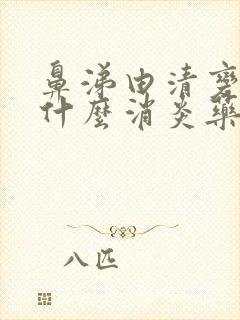 鼻涕由清變
什麼消炎藥
八匹